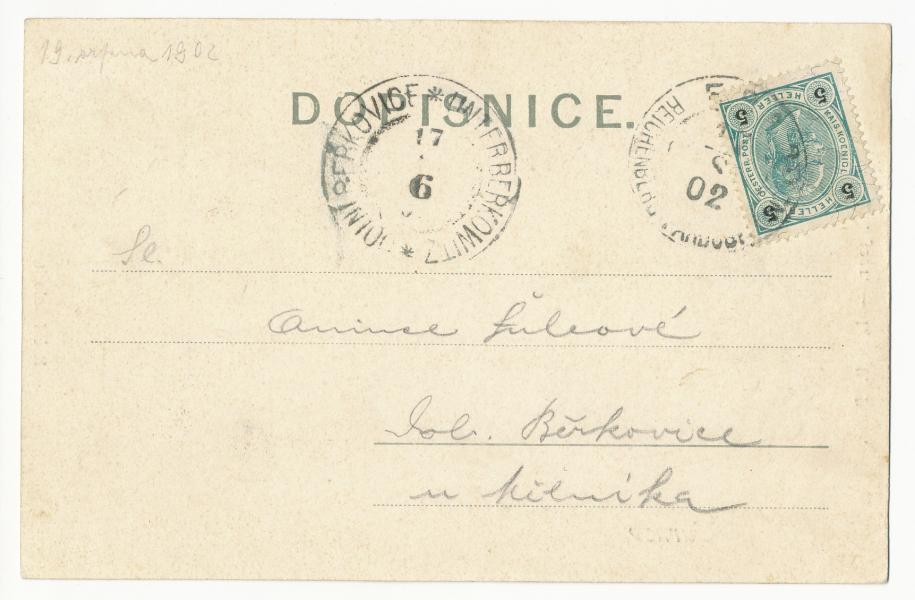 19. srpna 1902
DOPISNICE.
DOLNÍ BEŘKOVICE * UNTER BERKOWITZ *
17
6
REICHENBERG
02
5 5 5 5
HELLER HELLER
KAIS. KOENIGL.
OESTERR. POST
Sl.
Anince
Dol. Běřkovice
u Mělníka